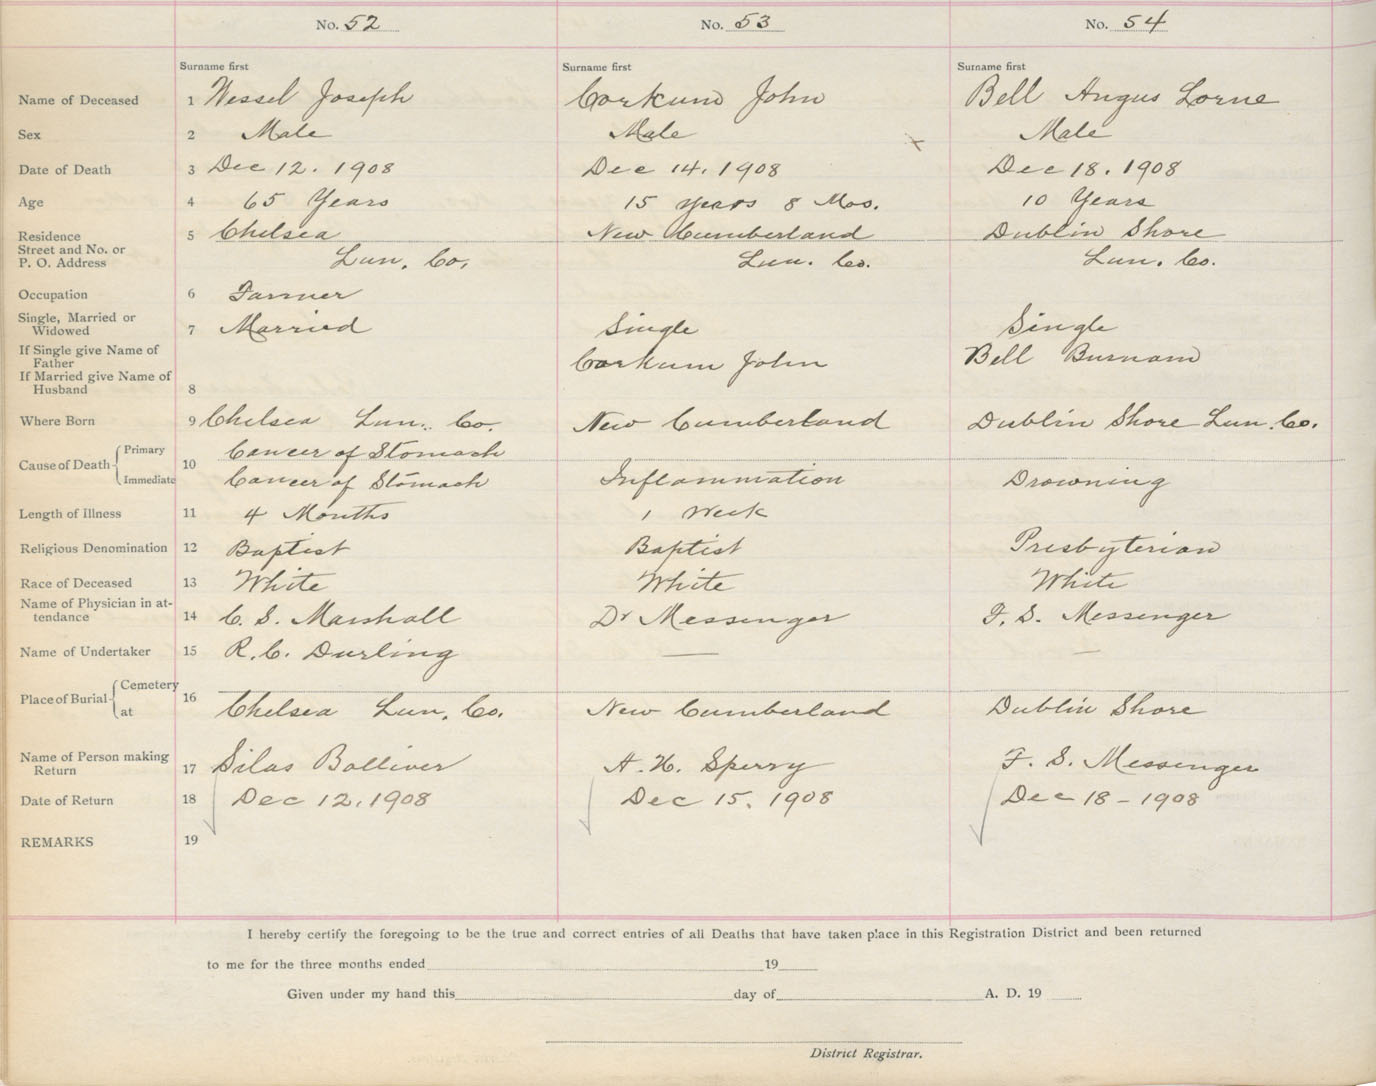 No. 52 No. 53 No. 54
Surname first Surname first Surname first
Name of Deceased 1 Wessel Joseph Corkum John Bell Angus Lorne
Sex 2 Male Male Male
Date of Death 3 Dec 12. 1908 Dec 14. 1908 Dec 18. 1908
Age 4 65 Years 15 years 8 Mos. 10 Years
Residence 5 Chelsea New Cumberland Dublin Shore
Street and No. or
P. O. Address Lun. Co. Lun. Co. Lun. Co.
Occupation 6 Farmer
Single, Married or
Widowed 7 Married Single Single
If Single give Name of
Father Corkum John Bell Burnam
If Married give Name of
Husband 8
Where Born 9 Chelsea Lun. Co. New Cumberland Dublin Shore Lun. Co.
Primary Cancer of Stomach
Cause of Death 10
Immediate Cancer of Stomach Inflammation Drowning
Length of Illness 11 4 Months 1 Week
Religious Denomination 12 Baptist Baptist Presbyterian
Race of Deceased 13 White White White
Name of Physician in at-
tendance 14 C. S. Marshall Dr Messenger F. S. Messenger
Name of Undertaker 15 R. C. Durling — —
Cemetery
Place of Burial 16
at Chelsea Lun. Co. New Cumberland Dublin Shore
Name of Person making
Return 17 Silas Bolliver A. H. Sperry F. S. Messenger
Date of Return 18 Dec 12, 1908 Dec 15. 1908 Dec 18 - 1908
REMARKS 19
I hereby certify the foregoing to be the true and correct entries of all Deaths that have taken place in this Registration District and been returned
to me for the three months ended 19
Given under my hand this day of A. D. 19
District Registrar.